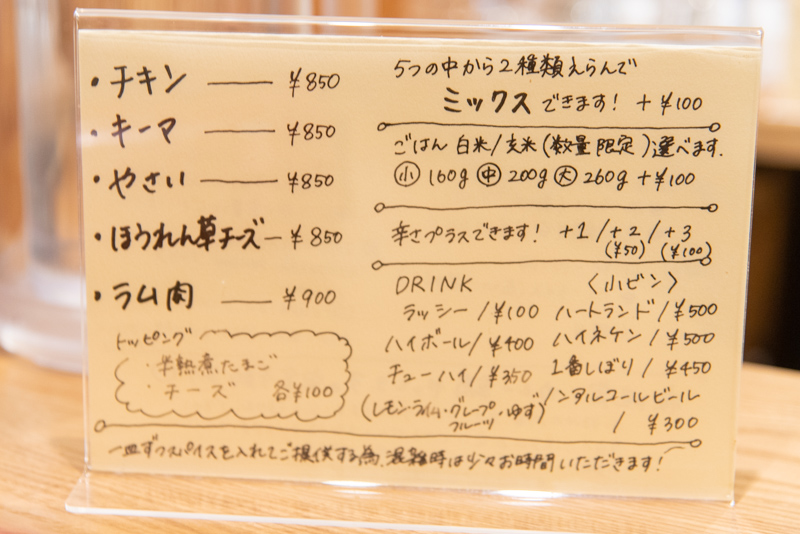 ・チキン ¥850
・キーマ ¥850
・やさい ¥850
・ほうれん草チーズ ¥850
・ラム肉 ¥900
トッピング
・半熟煮たまご
・チーズ 各¥100
5つの中から2種類えらんで
ミックスできます! +¥100
ごはん 白米/玄米(数量限定)選べます.
小 160g 中 200g 大 260g +¥100
辛さプラスできます! +1/+2/+3
(¥50) (¥100)
DRINK
ラッシー/¥100
ハイボール/¥400
チューハイ/¥350
(レモン・ライム・グレープ
フルーツ・ゆず)
〈小ビン〉
ハートランド/¥500
ハイネケン/¥500
1番しぼり/¥450
ノンアルコールビール
/¥300
一皿ずつスパイスを入れてご提供する為、混雑時は少々お時間いただきます!